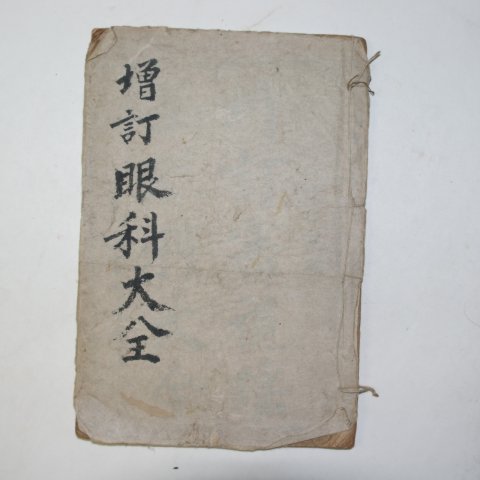 增訂眼科大全